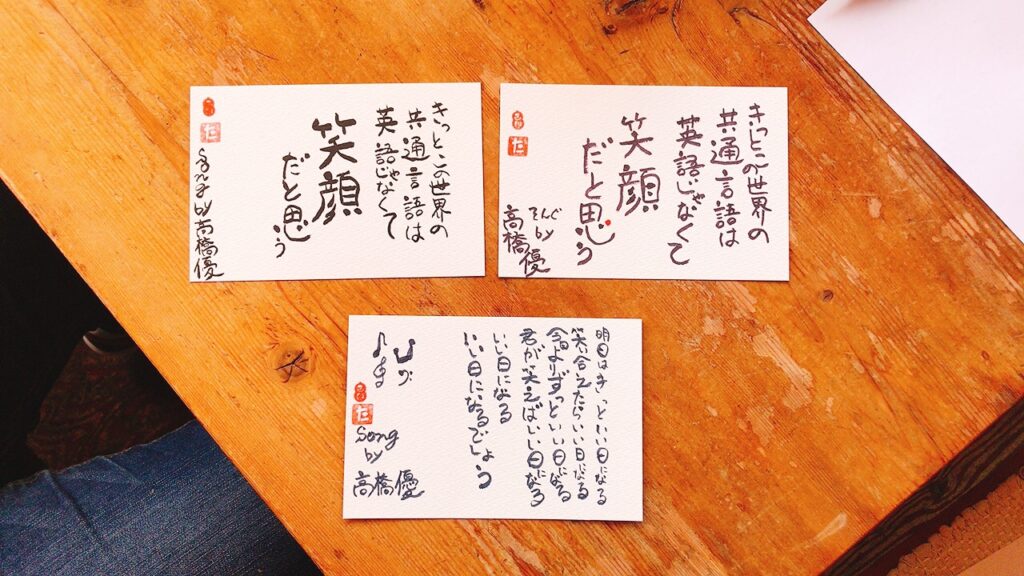 きっとこの世界の
共通言語は
英語じゃなくて
笑顔
だと思う
by 高橋優
きっとこの世界の
共通言語は
英語じゃなくて
笑顔
だと思う
そんぐ
by
高橋優
明日はきっといい日になる
笑い合えたらいい日になる
今日よりずっといい日になる
君が笑えばいい日になる
いい日になる
いい日になるでしょう
Song
by
高橋優